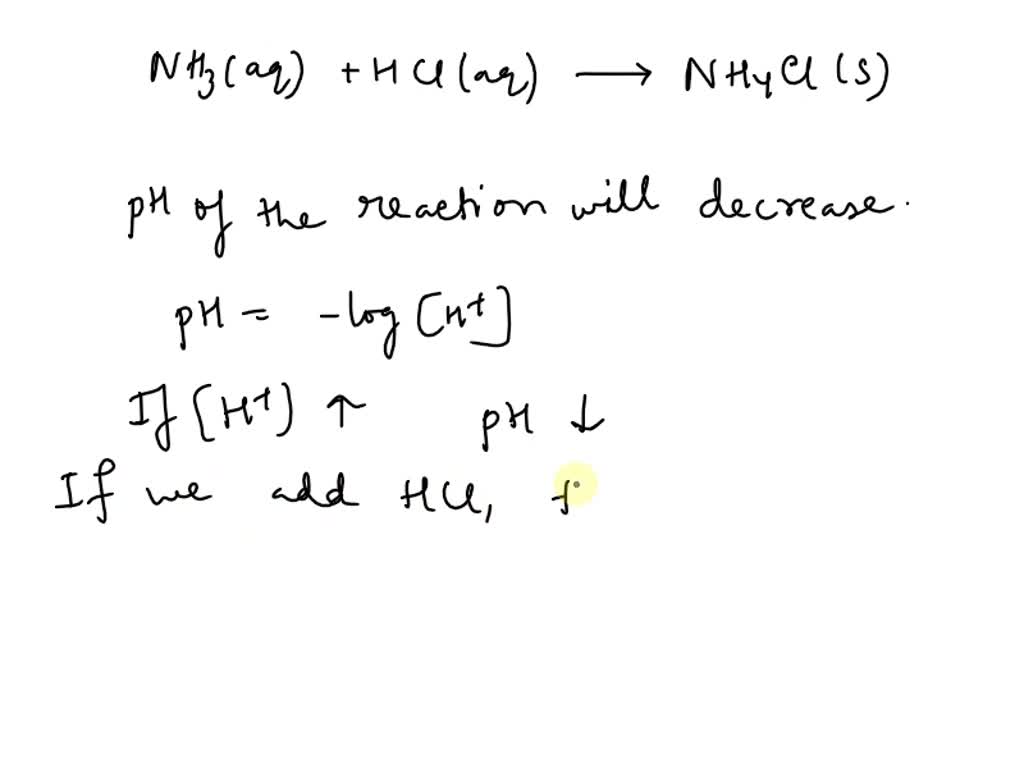 NH3(aq) + HCl(aq) → NH4Cl(s)
pH of the reaction will decrease.
pH = -log[H+]
If [H+] ↑ pH ↓
If we add HCl,